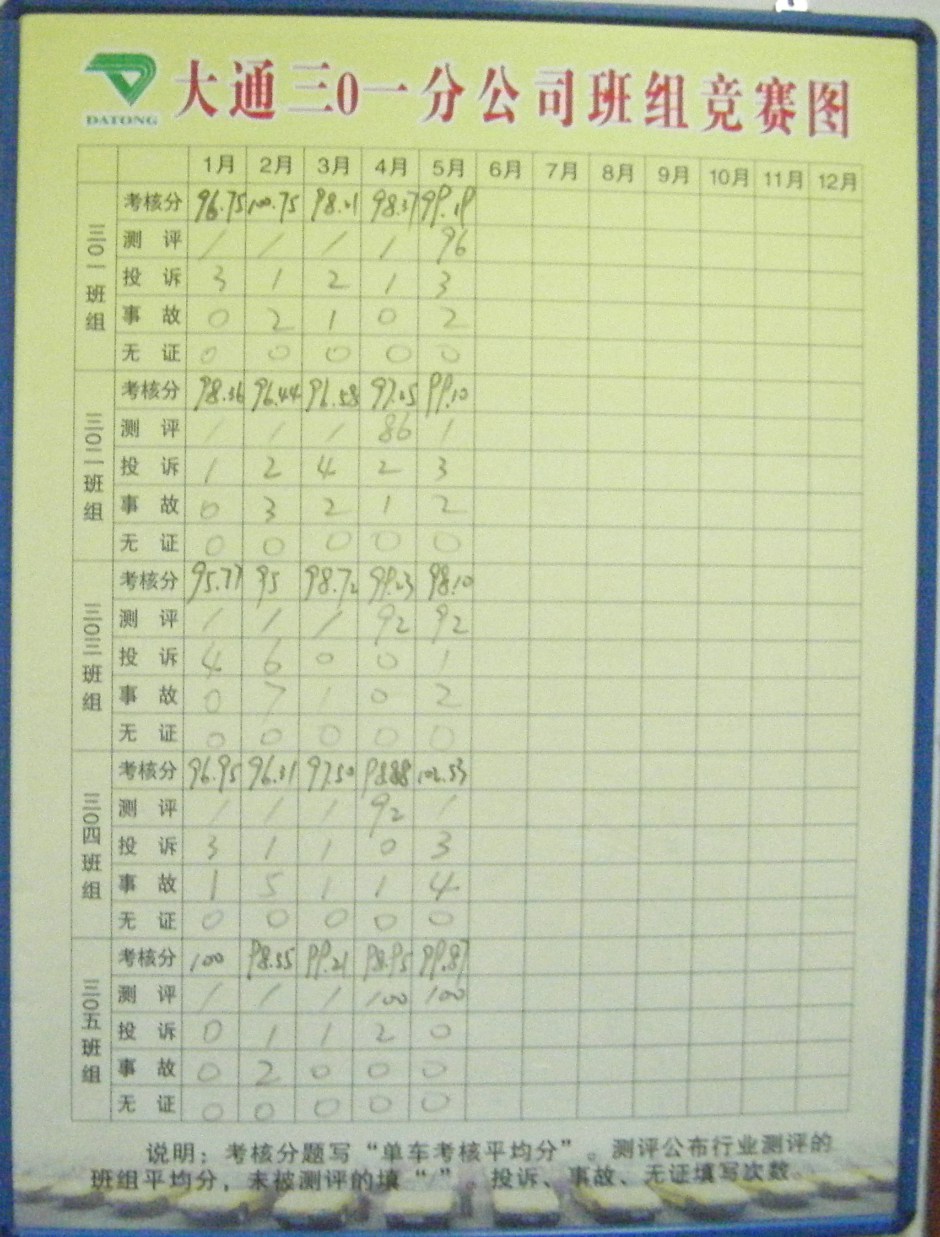 DATONG
大通三0一分公司班组竞赛图
1月 2月 3月 4月 5月 6月 7月 8月 9月 10月 11月 12月
三〇一班组
考核分 96.75 100.75 98.21 98.37 99.19
测评 / / / / 96
投诉 3 1 2 1 3
事故 0 2 1 0 2
无证 0 0 0 0 0
三〇二班组
考核分 98.36 96.44 96.58 97.25 99.10
测评 / / / 86 /
投诉 1 2 4 2 3
事故 0 3 2 1 2
无证 0 0 0 0 0
三〇三班组
考核分 95.77 95 98.72 99.23 98.10
测评 / / / 92 92
投诉 4 6 0 0 1
事故 0 7 1 0 2
无证 0 0 0 0 0
三〇四班组
考核分 96.95 96.31 97.50 98.88 102.53
测评 / / / 92 /
投诉 3 1 1 0 3
事故 1 5 1 1 4
无证 0 0 0 0 0
三〇五班组
考核分 100 98.55 99.21 98.95 99.87
测评 / / / 100 100
投诉 0 1 1 2 0
事故 0 2 0 0 0
无证 0 0 0 0 0
说明：考核分题写“单车考核平均分”。测评公布行业测评的
班组平均分，未被测评的填“/”。投诉、事故、无证填写次数。